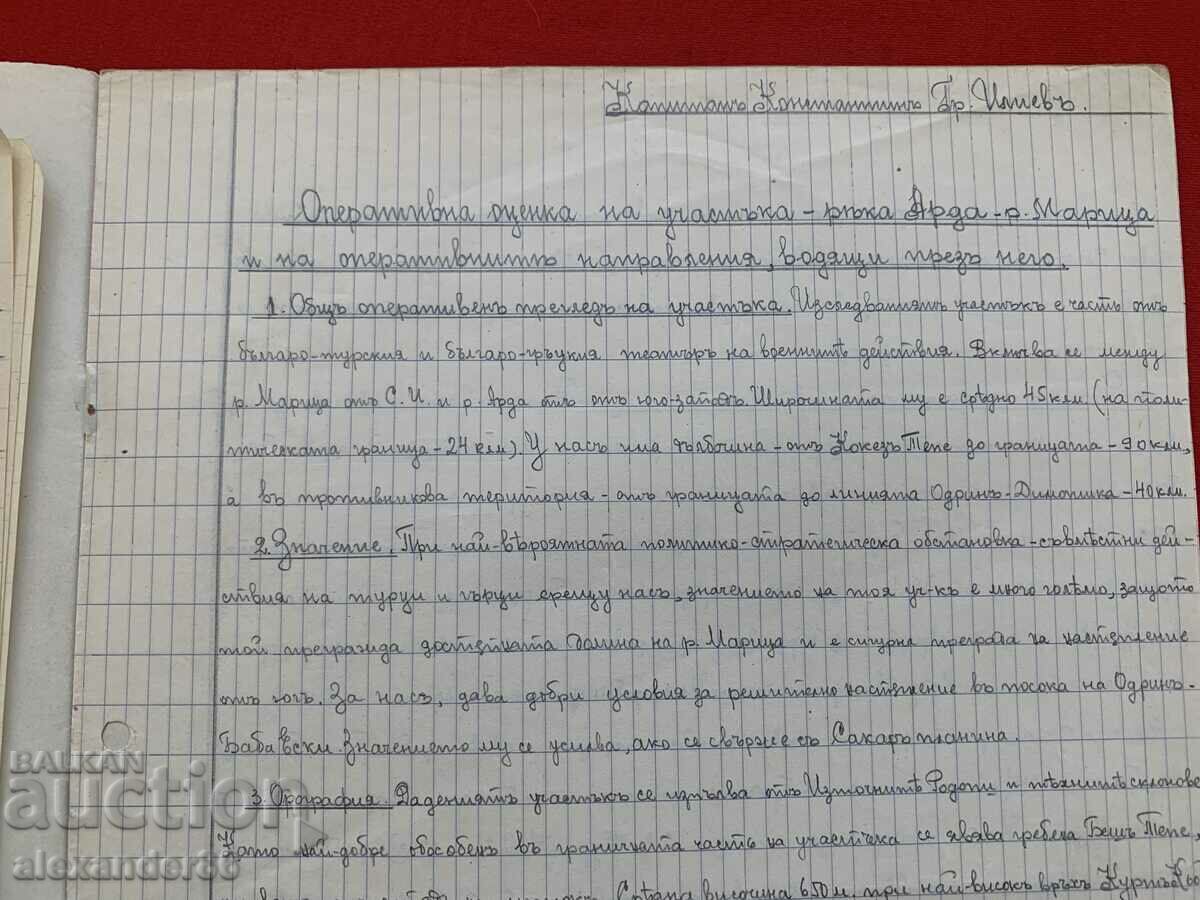 Капитанъ Константинъ Гр. Илиевъ.
Оперативна оценка на участъка - река Арда - р. Марица
и на оперативнитѣ направления, водящи презъ него.
1. Общъ оперативенъ прегледъ на участъка. Изследваниятъ участъкъ е часть отъ
българо-турския и българо-гръцкия театъръ на военнитѣ действия. Включва се между
р. Марица отъ С. И. и р. Арда отъ юго-западъ. Широчината му е срѣдно 45 клм (на поли-
тическата граница - 24 клм). У насъ има дълбочина - отъ Кокезъ Тепе до границата - 90 клм,
а въ противникова територия - отъ границата до линията Одринъ - Димотика - 40 клм.
2. Значение. При най-вѣроятната политико-стратегическа обстановка - съвмѣстни дей-
ствия на турци и гърци срещу насъ, значението на тоя уч-къ е много голѣмо, защото
той прегражда достѫпната долина на р. Марица и е сигурна преграда за настѫпление
отъ югъ. За насъ, дава добри условия за решително настѫпление въ посока на Одринъ -
Бабаески. Значението му се усилва, ако се свърже съ Сакаръ планина.
3. Орография. Дадениятъ участъкъ се изпълва отъ Източнитѣ Родопи и тѣхнитѣ склонове
Като най-добре обособенъ въ граничната часть на участъка се явява гребена Бешъ Тепе,
височина 650 м. при най-високъ връхъ Куртъ
BALKAN
auction
alexander86